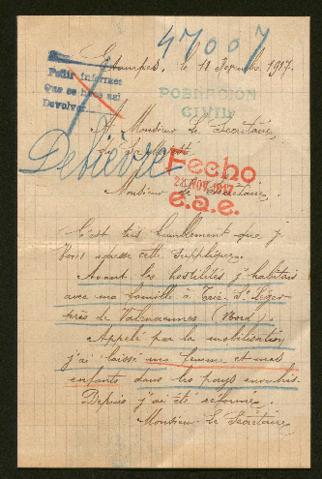 47007
Etampes, le 18 1917.
Pedir informes
Que se
Devolver
POBLACION
CIVIL
A Monsieur Le Secrétaire,
Fecho
24 NOV. 1917
e.a.e.
Monsieur Le Secrétaire,
C'est très humblement que je
vous adresse cette supplique.
Avant les hostilités j'habitais
avec ma famille à St Léger
près de Valenciennes (Nord).
Appelé par la mobilisation
j'ai laissé ma femme et mes
enfants dans les pays envahis.
Depuis j'ai été réformé.
Monsieur Le Secrétaire,